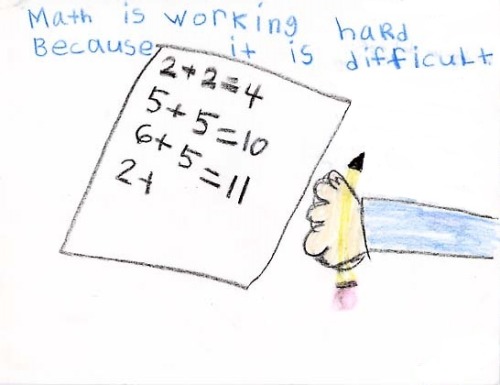 Math is working hard
Because it is difficult
2+2=4
5+5=10
6+5=11
2+